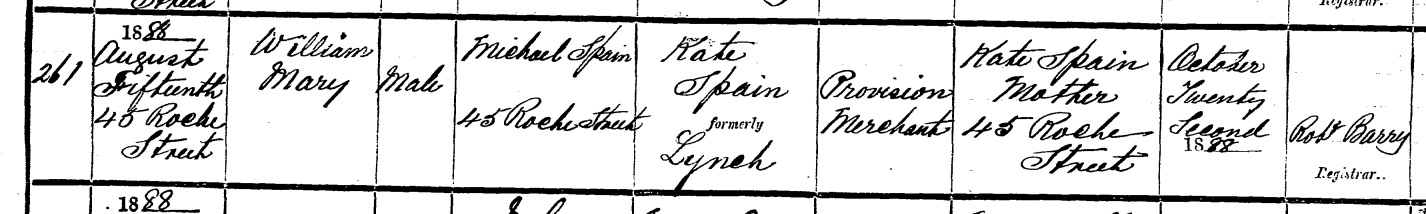 Street
Registrar.
261
1888
August
Fifteenth
45 Roche
Street
William
Mary
Male
Michael Spain
45 Roche Street
Kate
Spain
formerly
Lynch
Provision
Merchant
Kate Spain
Mother
45 Roche
Street
October
Twenty
Second
1888
Robt Barry
Registrar..
1888